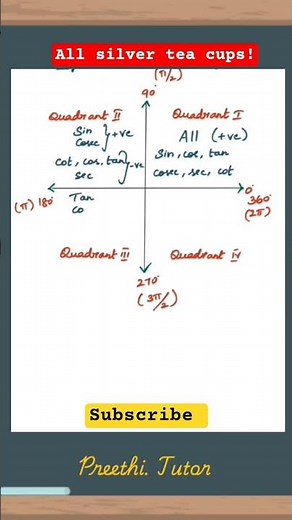 All silver tea cups!
(π/2)
90°
Quadrant II
Quadrant I
Sin
Cosec } +ve
All (+ve)
cot, cos, tan
sec } -ve
Sin, cos, tan
cosec, sec, cot
(π) 180°
0°
360°
(2π)
Tan
co
Quadrant III
Quadrant IV
270°
(3π/2)
Subscribe
Preethi. Tutor